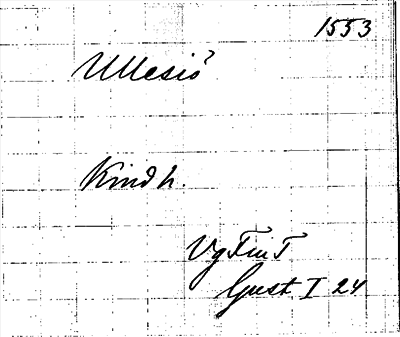 1553
Ullesiö
Kind h.
Vg Fm T
Gust I 24